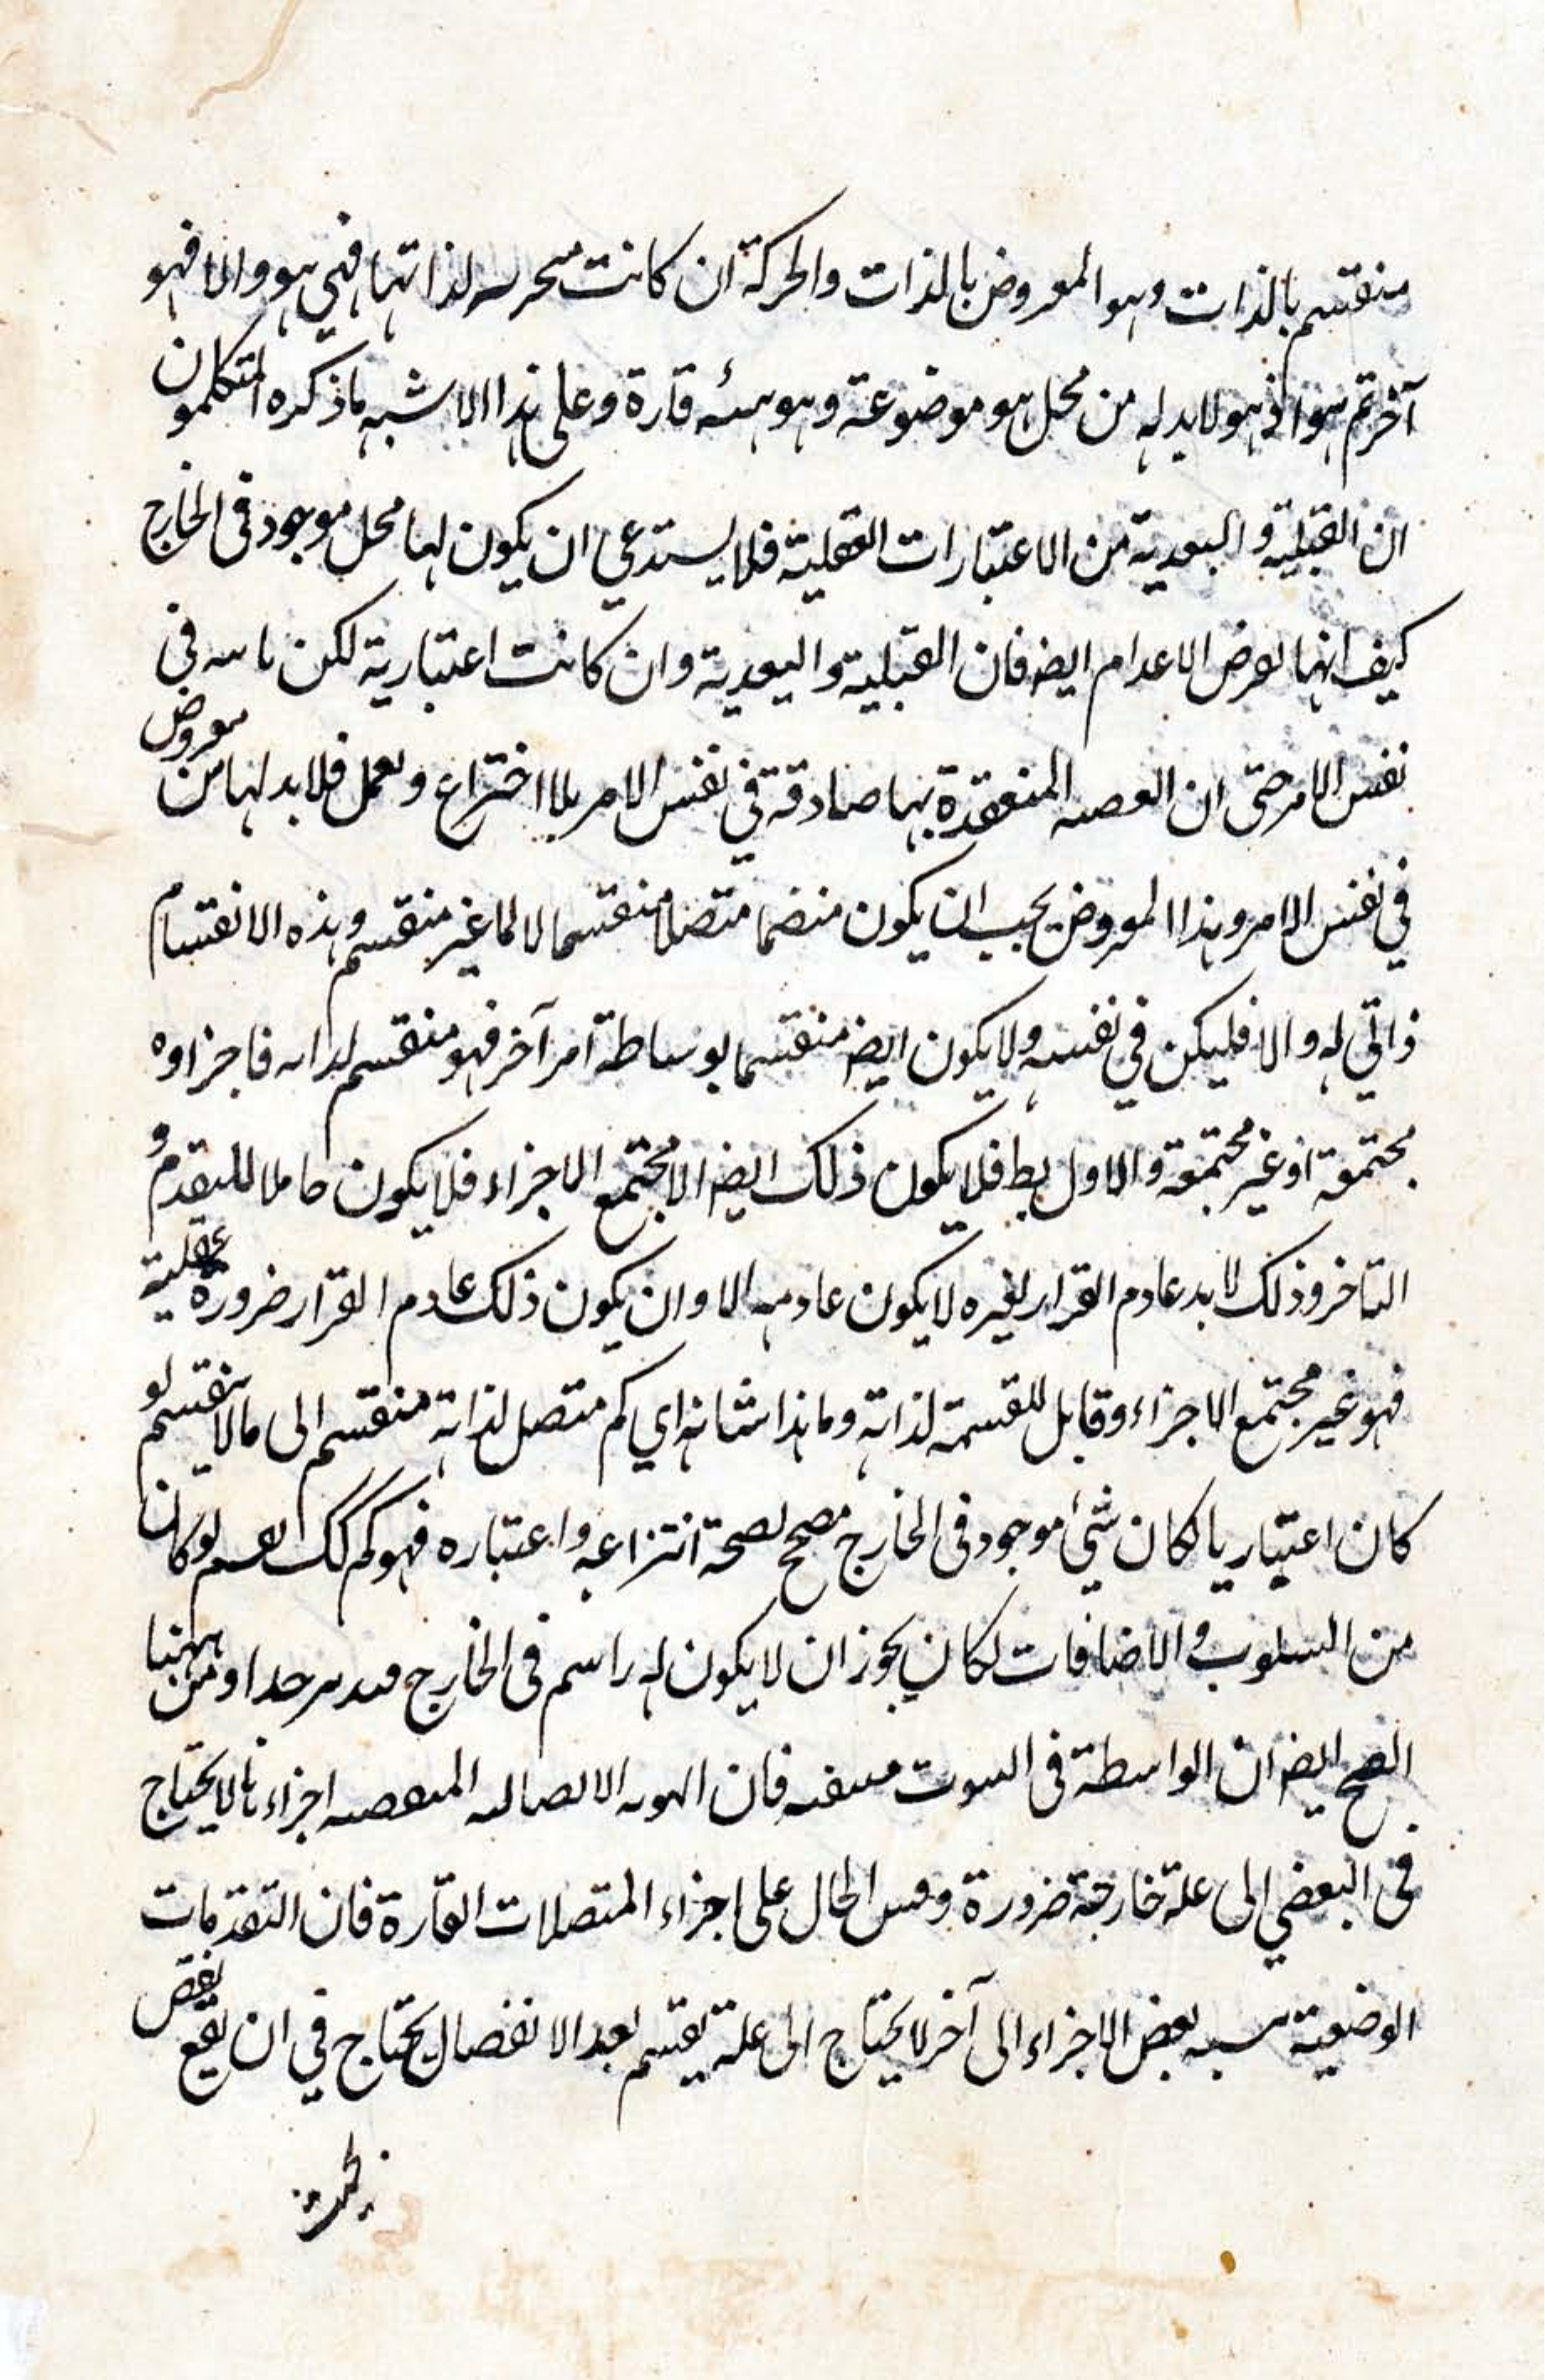 منقسم بالذات وهو المعروض بالذات والحركة ان كانت متجزية لذاتها فهي هو والا فهو
آخر ثم هو اذ هو لابد له من محل هو موضوعة وهو هيئه قارة وعلى هذا الاشبه ما ذكره المتكلمون
ان القبلية والبعدية من الاعتبارات العقلية فلا يستدعي ان يكون لها محل موجود فى الخارج
كيف انهما لعرض الاعدام ايضا فان القبلية والبعدية وان كانت اعتبارية لكن في
نفس الامر حتى ان المنعقدة بهما صادقة في نفس الامر بلا اختراع وتعمل فلابد لهما من معروض
في نفس الامر وهذا المعروض يجب ان يكون منضما متصلا منقسما لا لما غير منقسم وهذه الانقسام
ذاتي له والا فليكن في نفسه ولا يكون ايضا منقسما بوساطة امر آخر فهو منقسم لذاته فاجزاوه
مجتمعة او غير مجتمعة والاول بط فلا يكون ذلك ايضا الا مجتمع الاجزاء فلا يكون حاملا للتقدم و
التاخر وذلك لابد عادم القرار لغيره لا يكون عادمه الا وان يكون ذلك عادم القرار ضرورة عقلية
فهو غير مجتمع الاجزاء وقابل للقسمة لذاته وما هذا شانه اي كم متصل لذاته منقسم الى ما لا ينقسم لو
كان اعتباريا لكان شئ موجود فى الخارج مصحح لصحة انتزاعه واعتباره فهو كم كك نعم لو كان
من السلوب والاضافات لكان يجوز ان لا يكون له راسم فى الخارج فتدبر جدا ومن ههنا
اتضح ايضا ان الواسطة فى الثبوت منتفية فان الهوية الاتصالية المنقضية اجزاءنا لا يحتاج
فى البعضي الى علة خارجة ضرورة وقس الحال على اجزاء المتصلات القارة فان التقدمات
الوضعية نسبة بعض الاجزاء الى آخر لا يحتاج الى علة يقتسم بعد الانفصال يحتاج في ان يقع بعض